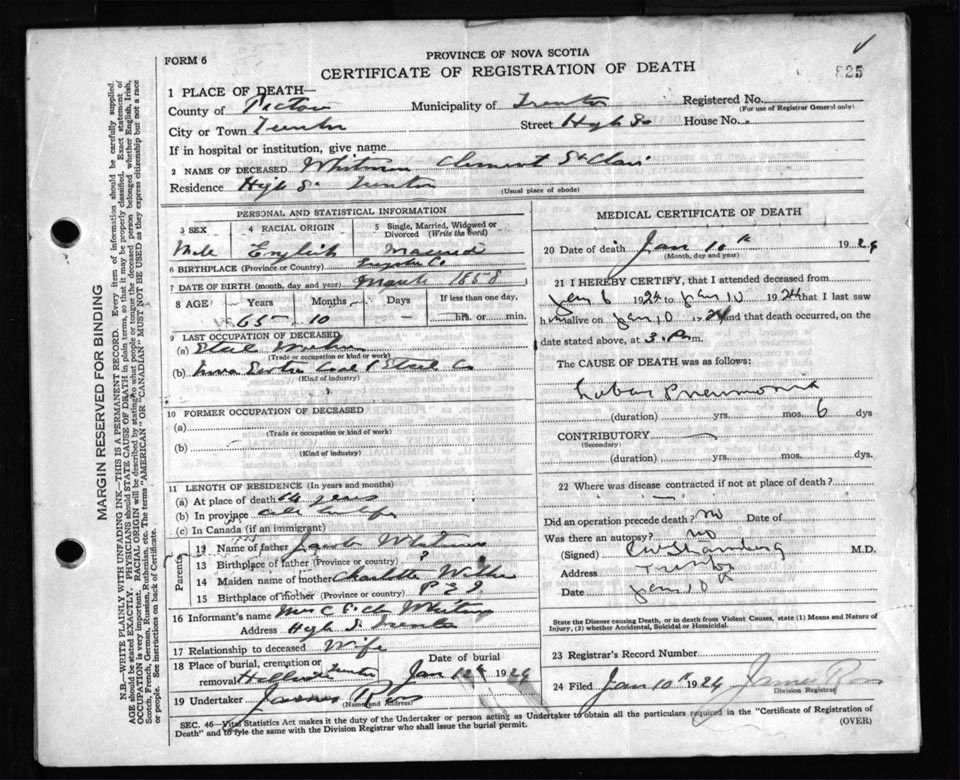 FORM 6
PROVINCE OF NOVA SCOTIA
CERTIFICATE OF REGISTRATION OF DEATH
825
1 PLACE OF DEATH—
County of Pictou Municipality of Trenton Registered No.
(For use of Registrar General only)
City or Town Trenton Street High St House No.
If in hospital or institution, give name
2 NAME OF DECEASED Whitman Clement St Clair
Residence High St Trenton
(Usual place of abode)
PERSONAL AND STATISTICAL INFORMATION
3 SEX 4 RACIAL ORIGIN 5 Single, Married, Widowed or Divorced (Write the word)
Male English Married
6 BIRTHPLACE (Province or Country) Co
7 DATE OF BIRTH (month, day and year) March 1858
8 AGE Years Months Days If less than one day,
65 10 — hrs. or min.
9 LAST OCCUPATION OF DECEASED
(a) Steel Worker
(Trade or occupation or kind of work)
(b) Nova Scotia Coal & Steel Co
(Kind of industry)
10 FORMER OCCUPATION OF DECEASED
(a)
(Trade or occupation or kind of work)
(b)
(Kind of industry)
11 LENGTH OF RESIDENCE (In years and months)
(a) At place of death 14 years
(b) In province all his life
(c) In Canada (if an immigrant)
Parents
12 Name of father Jacob Whitman
13 Birthplace of father (Province or country) ?
14 Maiden name of mother Charlotte
15 Birthplace of mother (Province or country) P E I
16 Informant's name Mrs C St Clair Whitman
Address High St Trenton
17 Relationship to deceased Wife
18 Place of burial, cremation or removal Trenton Date of burial Jan 12th 1924
19 Undertaker James Ross
(Name and Address)
MEDICAL CERTIFICATE OF DEATH
20 Date of death Jan 10th 1924
(Month, day and year)
21 I HEREBY CERTIFY, that I attended deceased from
Jan 6 1924 to Jan 10 1924 that I last saw
h im alive on Jan 10 1924 and that death occurred, on
date stated above, at 3. P.m.
The CAUSE OF DEATH was as follows:
Lobar Pneumonia
(duration) yrs. mos. 6 dys
CONTRIBUTORY
(Secondary)
(duration) yrs. mos. dys.
22 Where was disease contracted if not at place of death?
Did an operation precede death? no Date of
Was there an autopsy? no
(Signed) M.D.
Address Trenton
Date Jan 10th
State the Disease causing Death, or in death from Violent Causes, state (1) Means and Nature of Injury, (2) whether Accidental, Suicidal or Homicidal.
23 Registrar's Record Number
24 Filed Jan 10th 1924 James Ross
Division Registrar
SEC. 46—Vital Statistics Act makes it the duty of the Undertaker or person acting as Undertaker to obtain all the particulars required in the "Certificate of Registration of
Death" and to fyle the same with the Division Registrar who shall issue the burial permit. (OVER)
MARGIN RESERVED FOR BINDING
N.B.—WRITE PLAINLY WITH UNFADING INK—THIS IS A PERMANENT RECORD. Every item of information should be carefully supplied.
AGE should be stated EXACTLY. PHYSICIANS should STATE CAUSE OF DEATH in plain terms, so that it may be properly classified. Exact statement of
OCCUPATION is very important. RACIAL ORIGIN will be described by stating to what people or tongue the deceased person belonged whether English, Irish,
Scotch, French, German, Russian, Ruthenian, etc. The terms "AMERICAN" OR "CANADIAN" MUST NOT BE USED as they express citizenship but not a race
or people. See instructions on back of Certificate.